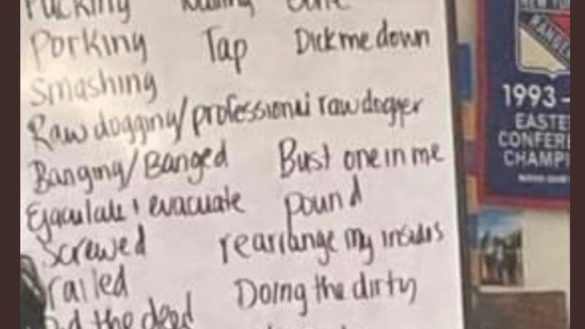 Porking Tap Dick me down
Smashing
Raw dogging/professional raw dogger
Banging/Banged Bust one in me
Ejaculate & evacuate pound
Screwed rearrange my insides
railed Doing the dirty
the deed
NEW YORK
RANGERS
1993-
EASTE
CONFERE
CHAMPI